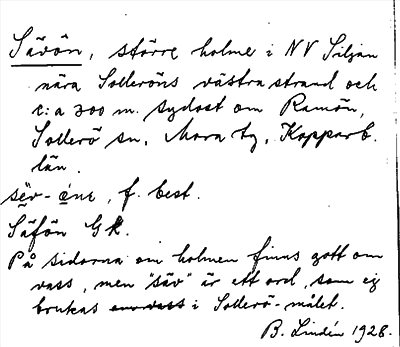 Sävön, större holme i NV Siljan
nära Solleröns västra strand och
c:a 300 m. sydost om Ramön,
Sollerö sn, Mora tg, Kopparb.
län.
sëv-ẹ́nẹ, f. best.
Säfön GK.
På sidorna om holmen finns gott om
vass, men "säv" är ett ord, som ej
brukas i Sollerö-målet.
B. Lindén 1928.